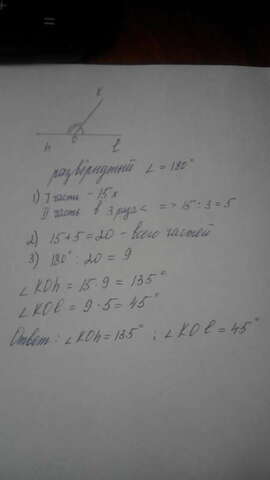 к
h o l
развёрнутый ∠ = 180°
1) I часть - 15х
II часть в 3 раза < => 15 : 3 = 5
2) 15 + 5 = 20 - всего частей
3) 180° : 20 = 9
∠ KOh = 15 · 9 = 135°
∠ KOl = 9 · 5 = 45°
Ответ: ∠ KOh = 135° ; ∠ KOl = 45°